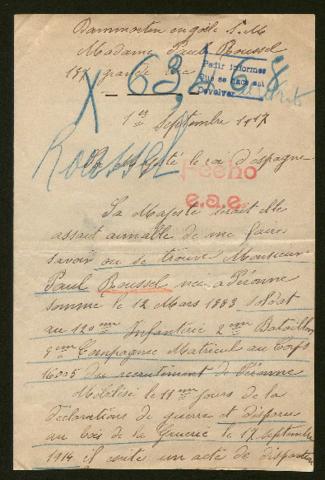 Dammartin en goële S. M
Madame Paul Roussel
187 grande rue
Pedir informes
Devolver
X 63,298
1er Septembre 1917
Roussel
Sa Majesté le roi d'espagne
Hecho
e.a.e.
Sa Majesté serait elle
assait aimable de me faire
savoir ou se trouve Monsieur
Paul Roussel neu a Péronne
somme le 12 Mars 1883 soldat
au 120me Infanterie 2me Bataillon
5me Compagnie Matricul au Corps
16005 du recrutement de Péronne
Mobélisé le 11me jours de la
déclarations de guerre et disparu
au bois de la Gruerie le 17 septembre
1914 il éxiste un acte de disparition